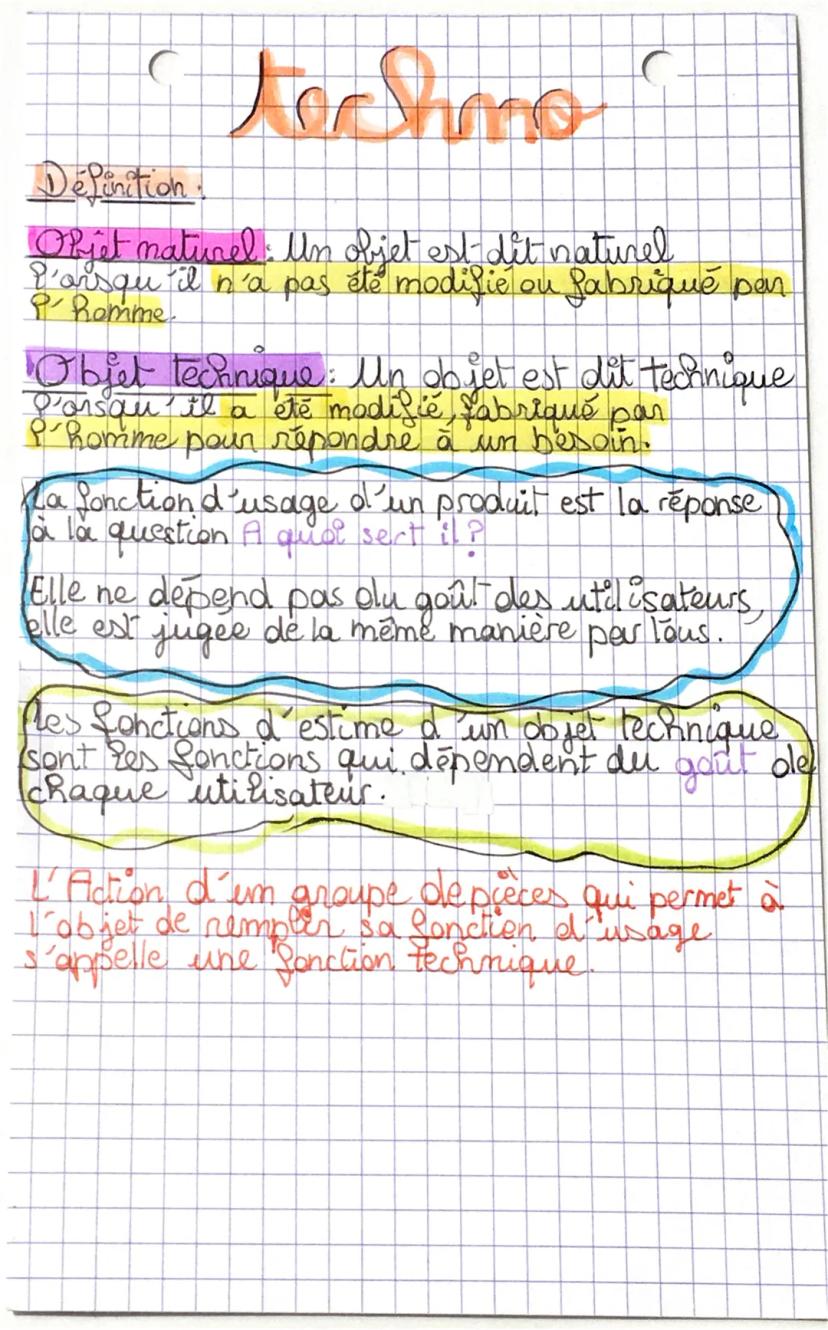 techno
Définition.
Objet naturel : Un objet est dit naturel
l'orsqu'il n'a pas été modifié ou fabriqué par
l'homme.
Objet technique : Un objet est dit technique
l'orsqu'il a été modifié, fabriqué par
l'homme pour répondre à un besoin.
La fonction d'usage d'un produit est la réponse
à la question A quoi sert il ?
Elle ne dépend pas du goût des utilisateurs,
elle est jugée de la même manière par tous.
Les fonctions d'estime d'un objet technique
sont les fonctions qui dépendent du goût de
chaque utilisateur.
L'Action d'un groupe de pièces qui permet à
l'objet de remplir sa fonction d'usage
s'appelle une fonction technique.